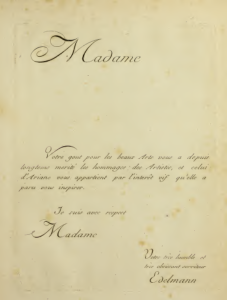 Madame
Votre gout pour les beaux Arts vous a depuis
longtems merité les hommages des Artistes, et celui
d'Ariane vous appartient par l'interêt vif qu'elle a
paru vous inspirer.
Je suis avec respect
Madame
Votre très humble et
très obéissant serviteur
Edelmann